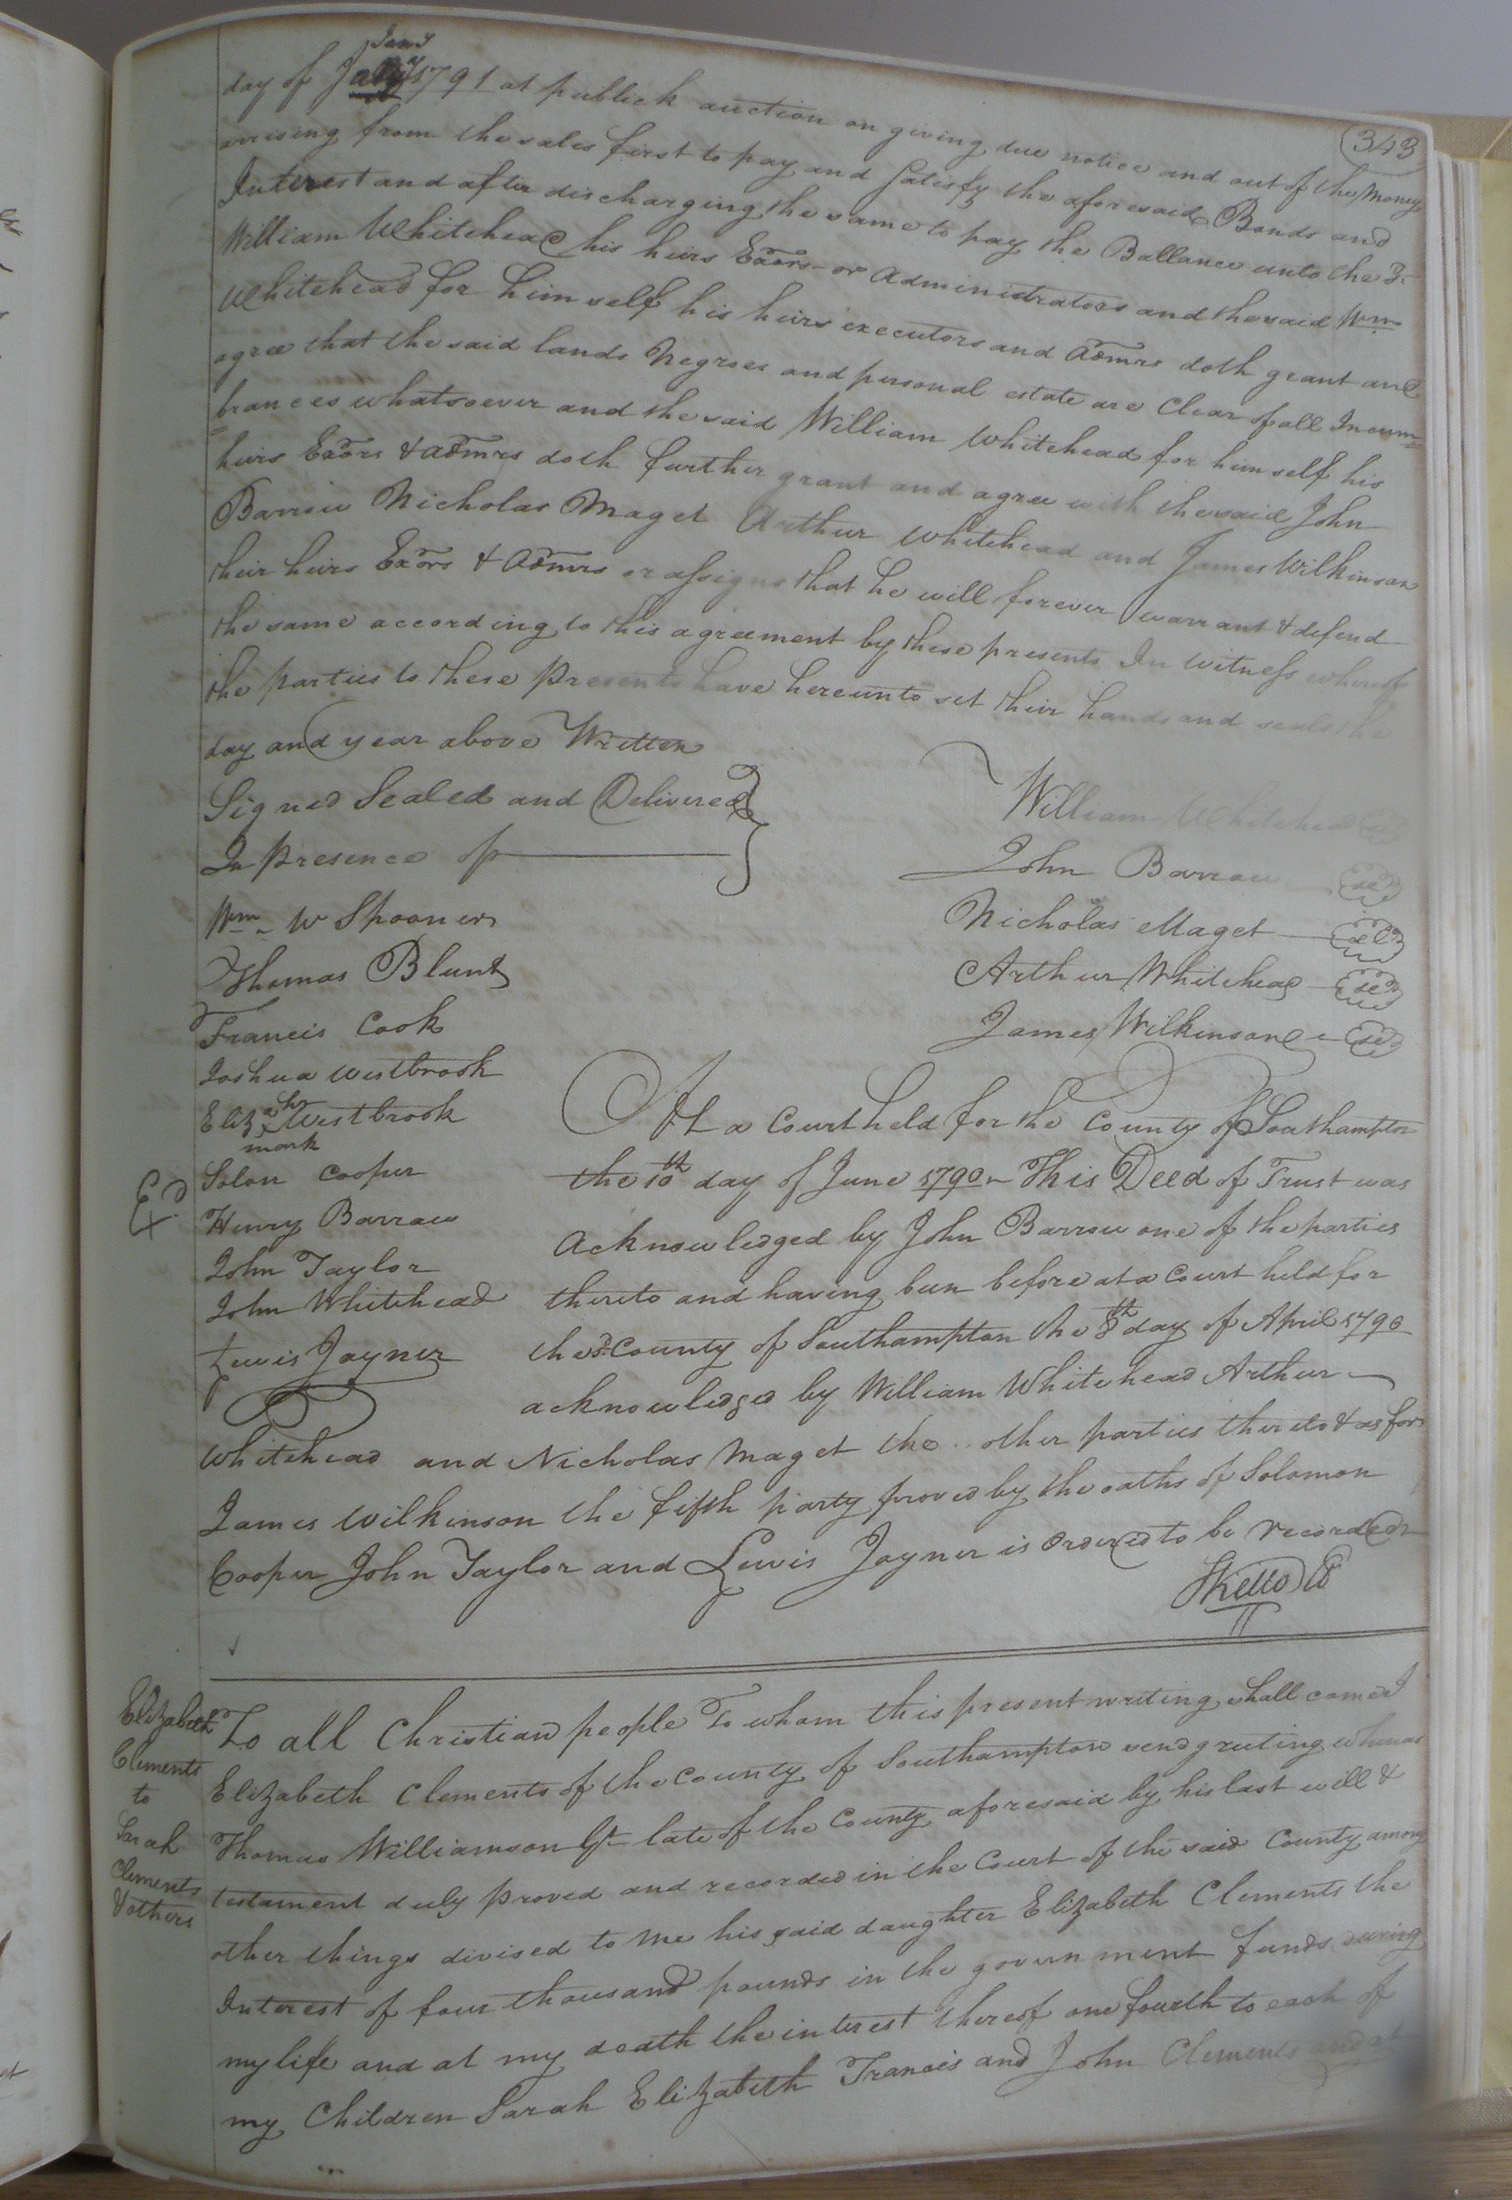 343
day of Jany 1791 at publick auction on giving due notice and out of the Money
arrising from the sales first to pay and satisfy the aforesaid Bonds and
Interest and after discharging the same to pay the Ballance unto the sd.
William Whitehead his heirs Exors or administrators and the said Wm
Whitehead for himself his heirs executors and admrs doth grant and
agree that the said lands Negroes and personal estate are Clear of all Incum=
=brances whatsoever and the said William Whitehead for himself his
heirs Exors & admrs doth further grant and agree with the said John
Barrow Nicholas Maget Arthur Whitehead and James Wilkinson
their heirs Exors & admrs or assigns that he will forever warrant & defend
the same according to this agreement by these presents In witness whereof
the parties to these Presents have hereunto set their hands and seals the
day and year above Written
Signed Sealed and Delivered
In presence of
William Whitehead
John Barrow
Nicholas Maget
Arthur Whitehead
James Wilkinson
Wm W Spooner
Thomas Blunt
Francis Cook
Joshua Westbrook
Eliza her x Westbrook
mark
Solon Cooper
Henry Barrow
John Taylor
John Whitehead
Lewis Joyner
Exd
At a Court held for the County of Southampton
the 10th day of June 1790 This Deed of Trust was
acknowledged by John Barrow one of the parties
thereto and having been before at a Court held for
the sd. County of Southampton the 8th day of April 1790
acknowledged by William Whitehead Arthur
Whitehead and Nicholas Maget the other parties thereto & as for
James Wilkinson the fifth party proved by the oaths of Solomon
Cooper John Taylor and Lewis Joyner is ordered to be recorded
SKello CC
Elizabeth
Clements
to
Sarah
Clements
& others
To all Christian people To whom this present writing shall come I
Elizabeth Clements of the County of Southampton send greeting whereas
Thomas Williamson Gt late of the County aforesaid by his last will &
testament duly proved and recorded in the Court of the said County among
other things divised to me his said daughter Elizabeth Clements the
Interest of four thousand pounds in the government funds during
my life and at my death the interest thereof one fourth to each of
my Children Sarah Elizabeth Francis and John Clements and at